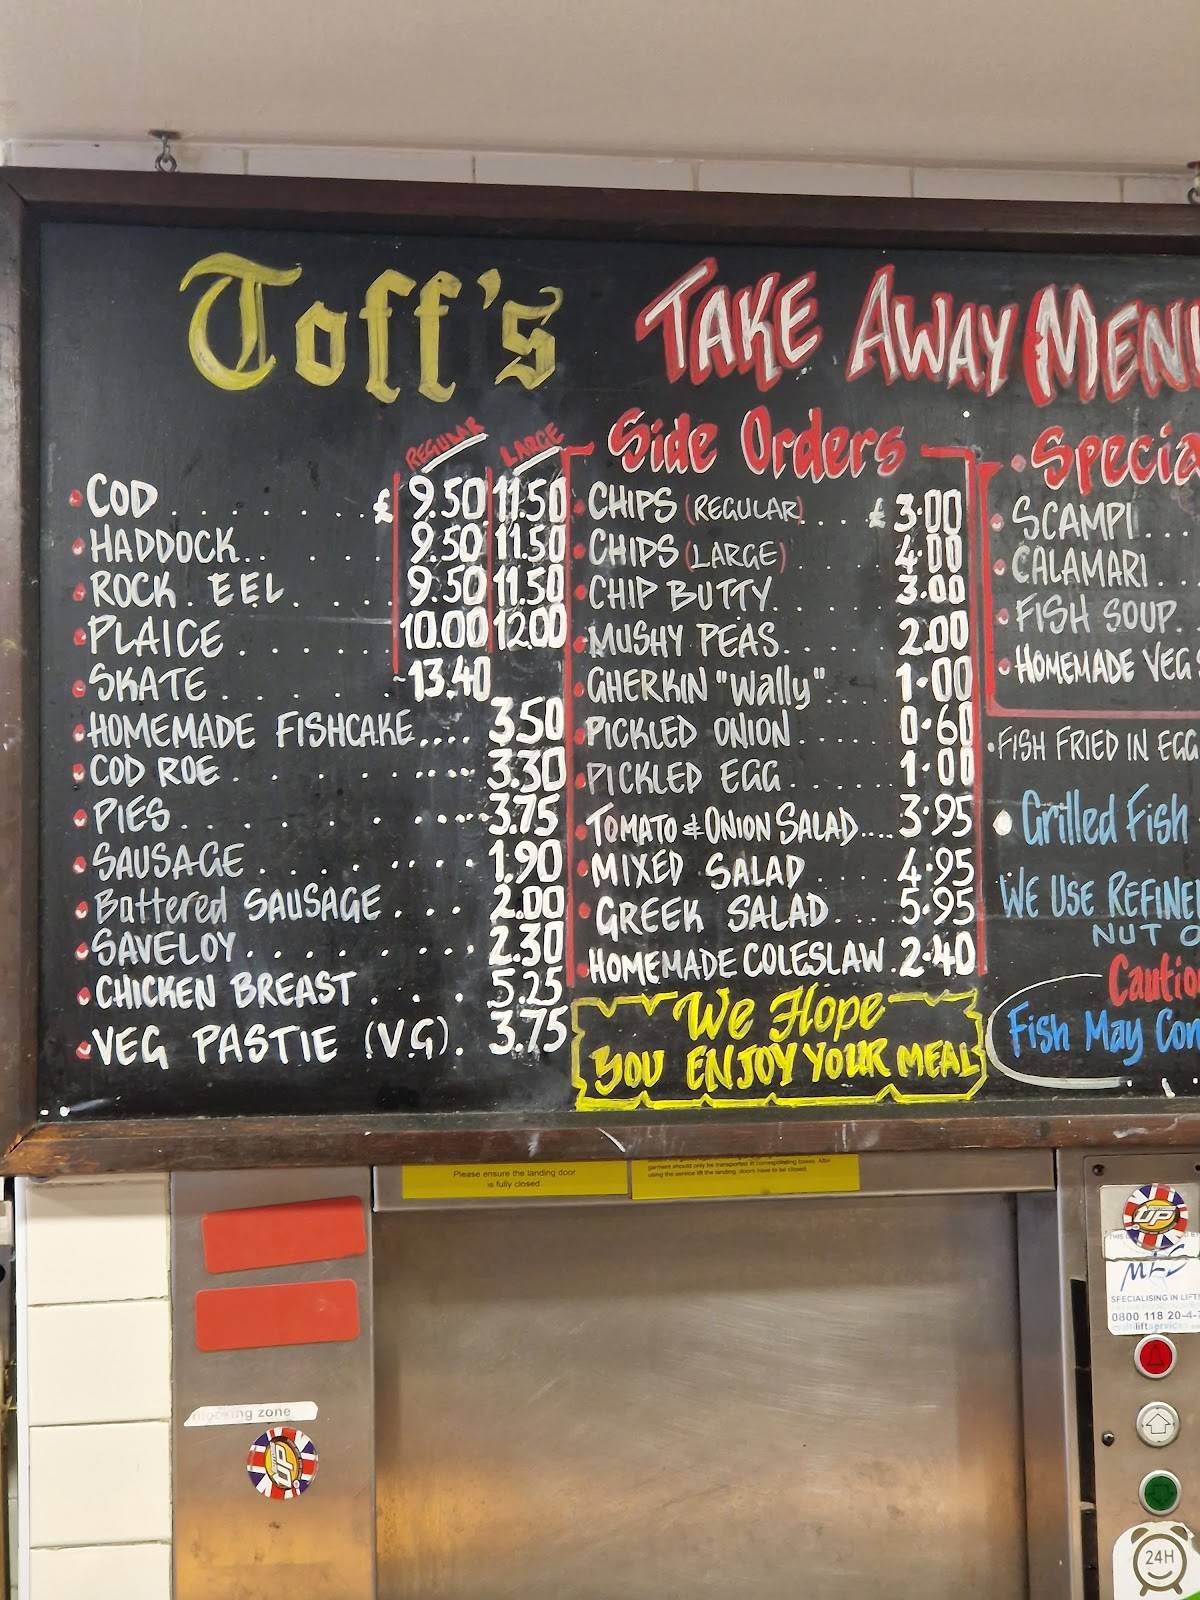 Toff's TAKE AWAY MENU
REGULAR LARGE
COD . . . . . . . £ 9.50 11.50
HADDOCK . . . . . . . 9.50 11.50
ROCK EEL . . . . . . 9.50 11.50
PLAICE . . . . . 10.00 12.00
SKATE . . . . . . 13.40
HOMEMADE FISHCAKE.... 3.50
COD ROE . . . . . . . . 3.30
PIES . . . . . . . . . 3.75
SAUSAGE . . . . . . . . 1.90
Battered SAUSAGE . . . 2.00
SAVELOY . . . . . . . . 2.30
CHICKEN BREAST . . . . 5.25
VEG PASTIE (V.G). 3.75
Side Orders
CHIPS (REGULAR) . . . £ 3.00
CHIPS (LARGE) . . . . . 4.00
CHIP BUTTY . . . . . . 3.00
MUSHY PEAS . . . . . 2.00
GHERKIN "Wally" . . . . 1.00
PICKLED ONION . . . . . 0.60
PICKLED EGG . . . . . . 1.00
TOMATO & ONION SALAD.... 3.95
MIXED SALAD . . . . . 4.95
GREEK SALAD . . . . . 5.95
HOMEMADE COLESLAW . 2.40
We Hope
YOU ENJOY YOUR MEAL
Specia
SCAMPI . . .
CALAMARI . . .
FISH SOUP . .
HOMEMADE VEG
FISH FRIED IN EGG
Grilled Fish
WE USE REFINE
NUT O
Cautio
Fish May Con
Please ensure the landing door
is fully closed.
garment should only be transported in corresponding boxes. After
using the service lift the landing doors have to be closed.
zone
UP
UP
SPECIALISING IN LIFT
0800 118 20-4-7
liftservic
24H